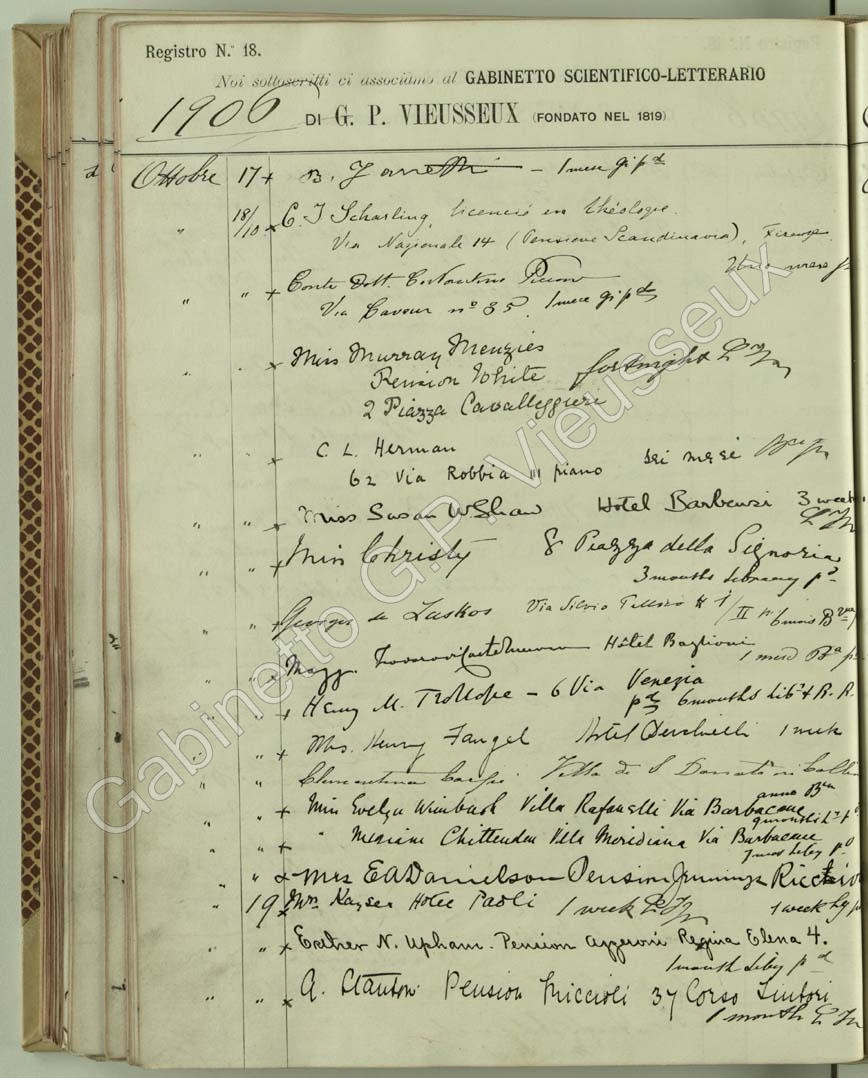 Registro N.° 18.
Noi sottoscritti ci associamo al GABINETTO SCIENTIFICO-LETTERARIO
1906 DI G. P. VIEUSSEUX (FONDATO NEL 1819)
Ottobre 17 + B. - 1 mese gi pd
" 18/10 x C. J Scharling, licencié en théologie.
Via Nazionale 14 (Pensione Scandinavia), Firenze.
Uno mese
" " + Conte Dott. Costantino
Via Cavour n° 35. 1 mese gi pd
x Miss Murray Menzies
Pension White fortnight
2 Piazza Cavalleggieri
" " + C. L. Herman
62 Via Robbia III piano sei mesi
" " + Miss Susan W. Shaw Hotel Barbensi 3 weeks
" " + Miss Christy 8 Piazza della Signoria
3 months library pd
" " + Georges de Laskos Via Silvio
" " x Magg. Hôtel Baglioni
1 mese
" " + Henry M. Trollope - 6 Via Venezia
pd 6 months Liby & R. R.
" " + Mrs. Henry Fangel Hotel 1 week
" " Clementina Villa di S Donato
anno
" " + Miss Evelyn Wimbush Villa Rafanelli Via Barbacane
" " + " Chittenden Villa Meridiana Via Barbacane
liby pd
" " x Mrs E A Danielson Pension Jennings Riccioli
" 19 x Mrs Kayser Hotel Paoli 1 week 1 week
" " x Esther N. Upham. Pension Azzeroni Regina Elena 4.
1 month Liby pd
" " x A. Staunton Pension Riccioli 37 Corso Tintori
1 month
Gabinetto G.P. Vieusseux